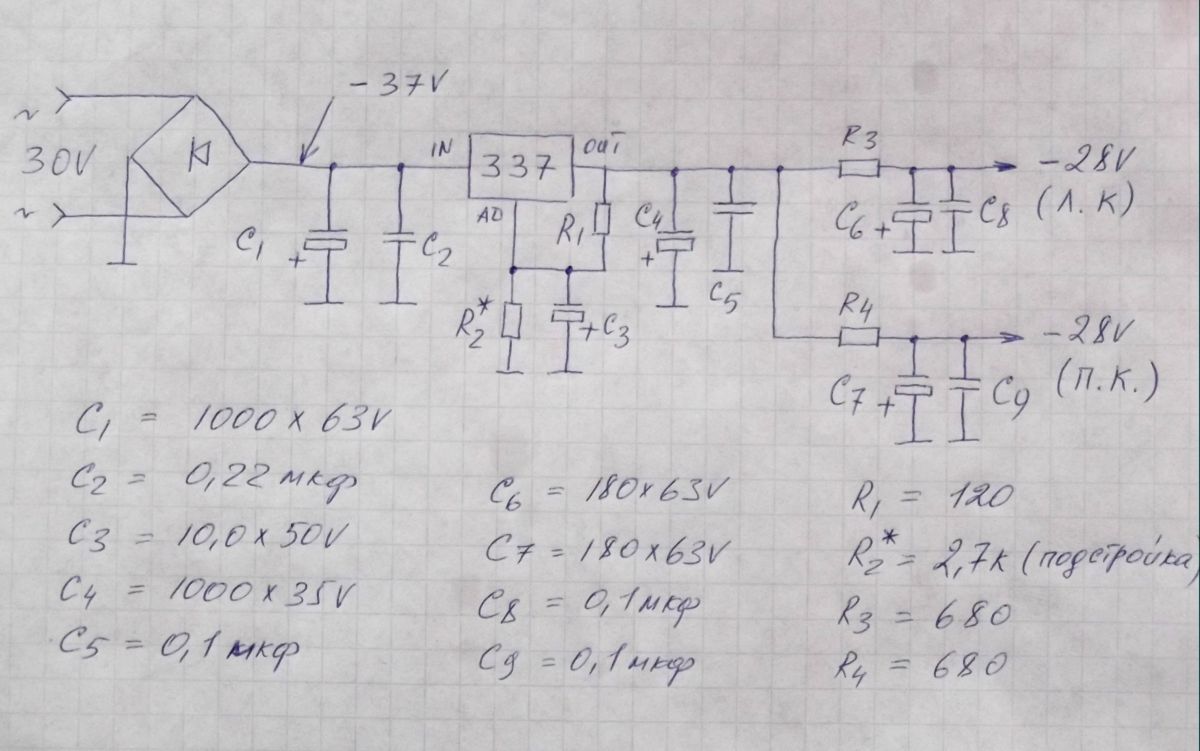 - 37V
~
30V
~
IN
337
OUT
AD
C1
+
C2
R1
R2*
+ C3
C4
+
C5
R3
- 28V
(Л. К)
C6 +
C8
R4
- 28V
(П.К.)
C7 +
C9
C1 = 1000 x 63V
C2 = 0,22 мкф
C3 = 10,0 x 50V
C4 = 1000 x 35V
C5 = 0,1 мкф
C6 = 180 x 63V
C7 = 180 x 63V
C8 = 0,1 мкф
C9 = 0,1 мкф
R1 = 120
R2* = 2,7к (подстройка)
R3 = 680
R4 = 680